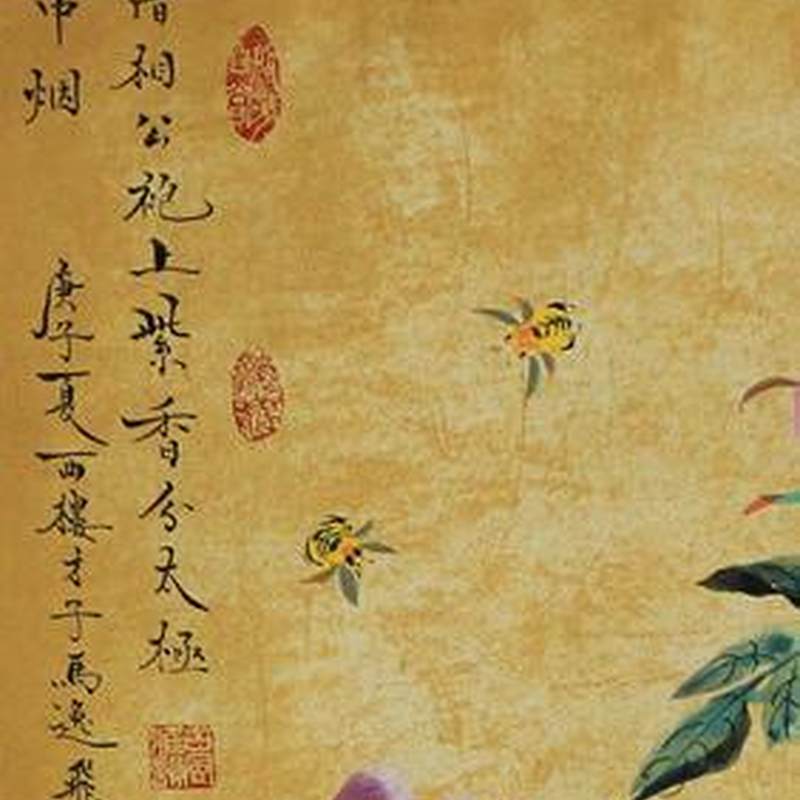 相公袍上紫香分太極
烟
庚子夏西樓才子馬逸飛